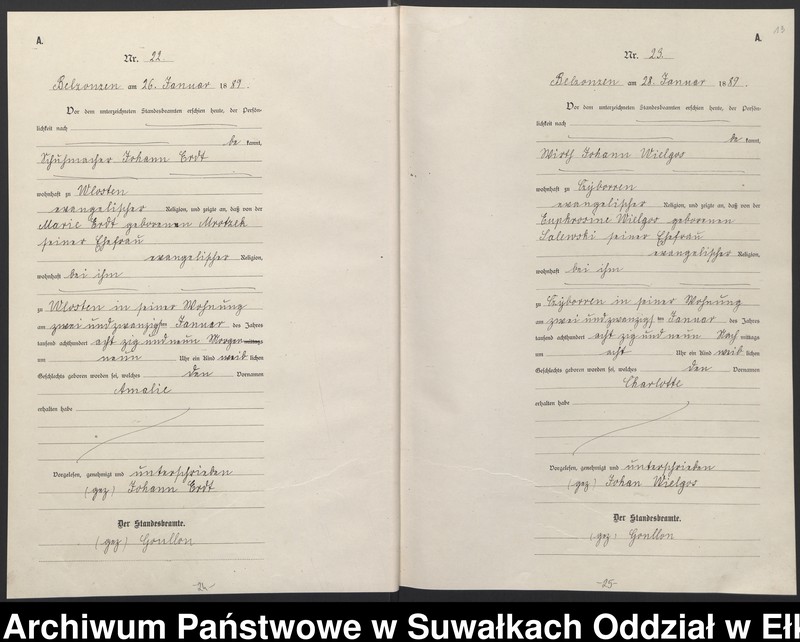 A.
Nr. 22.
Belzonzen am 26. Januar 1889.
Vor dem unterzeichneten Standesbeamten erschien heute, der Persön-
lichkeit nach
be kannt,
Schuhmacher Johann Erdt
wohnhaft zu Wlosten
evangelischer Religion, und zeigte an, daß von der
Marie Erdt geborenen Mrotzek
seiner Ehefrau
evangelischer Religion,
wohnhaft bei ihm
zu Wlosten in seiner Wohnung
am zwei und zwanzigsten Januar des Jahres
tausend achthundert acht zig und neun Morgen mittags
um neun Uhr ein Kind weib lichen
Geschlechts geboren worden sei, welches den Vornamen
Amalie
erhalten habe
Vorgelesen, genehmigt und unterschrieben
(gez) Johann Erdt
Der Standesbeamte.
(gez) Goullon
-24-
A.
13
Nr. 23.
Belzonzen am 28. Januar 1889.
Vor dem unterzeichneten Standesbeamten erschien heute, der Persön-
lichkeit nach
be kannt,
Wirth Johann Wielgos
wohnhaft zu Czyborren
evangelischer Religion, und zeigte an, daß von der
Euphrosine Wielgos geborenen
Salewski seiner Ehefrau
evangelischer Religion,
wohnhaft bei ihm
zu Czyborren in seiner Wohnung
am zwei und zwanzigsten Januar des Jahres
tausend achthundert acht zig und neun Nach mittags
um acht Uhr ein Kind weib lichen
Geschlechts geboren worden sei, welches den Vornamen
Charlotte
erhalten habe
Vorgelesen, genehmigt und unterschrieben
(gez) Johan Wielgos
Der Standesbeamte.
(gez) Goullon
-25-
Archiwum Państwowe w Suwałkach Oddział w Eł